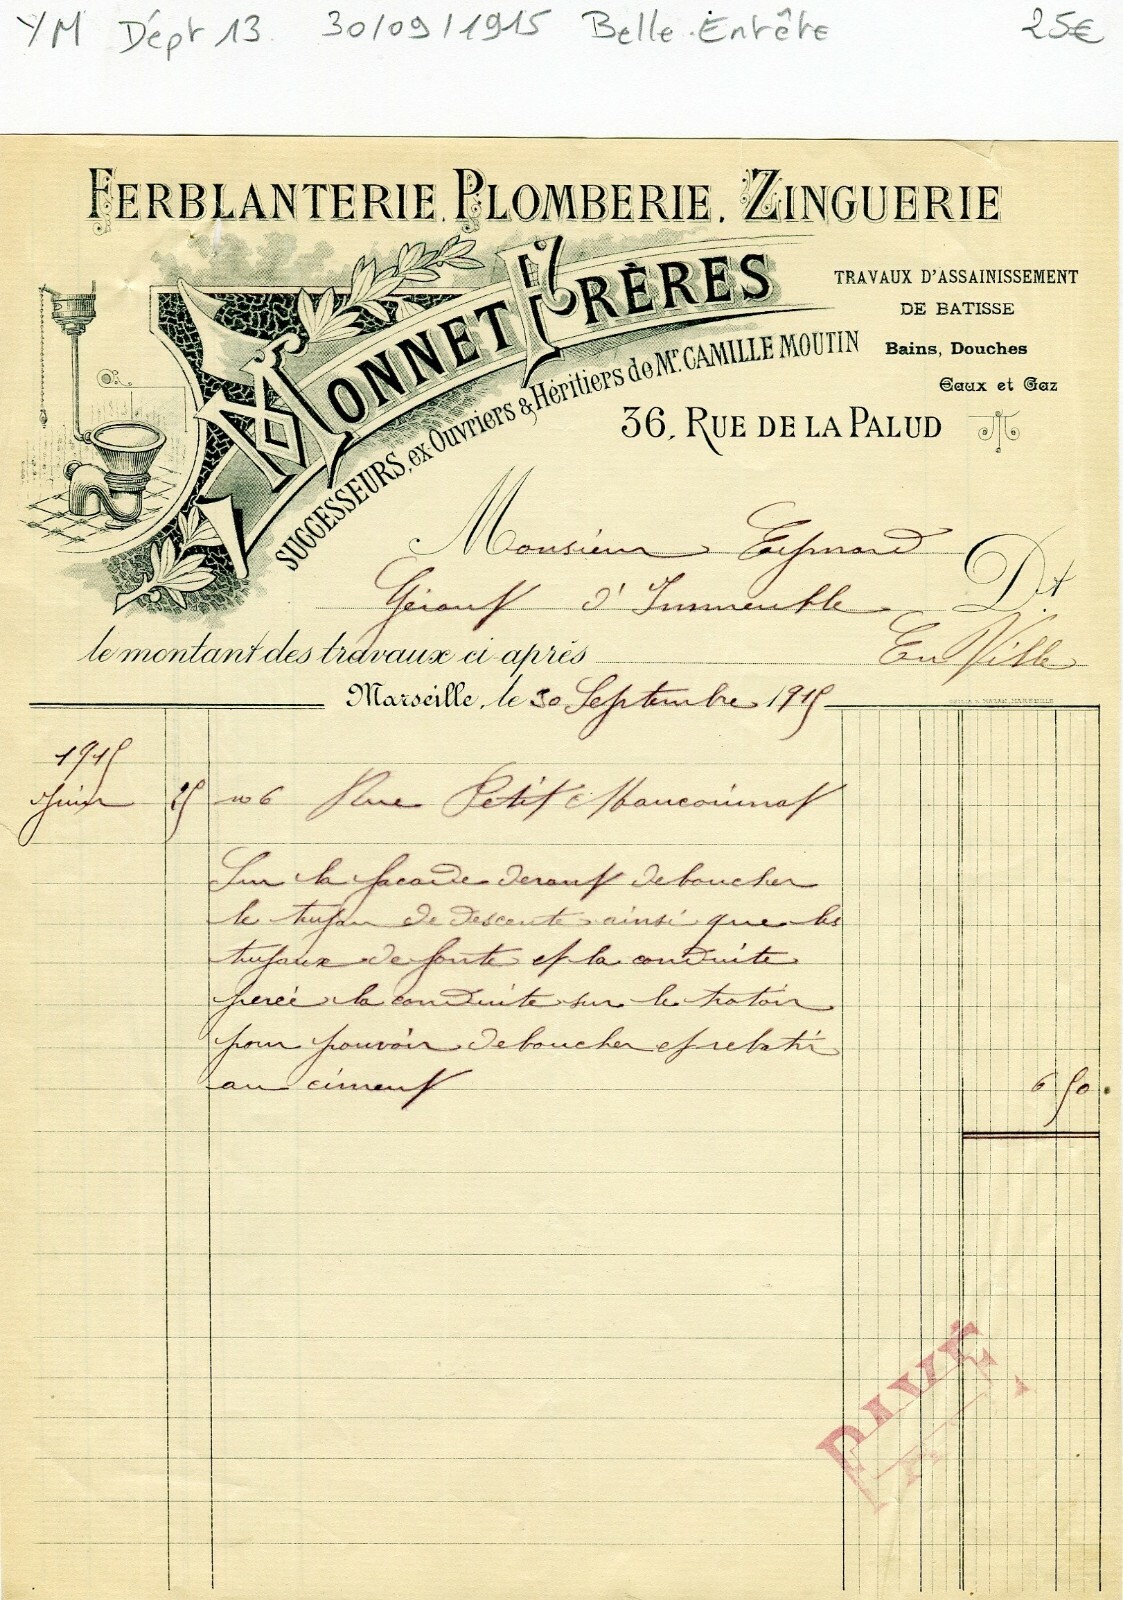 YM Dépt 13 30/09/1915 Belle Entête 25€
FERBLANTERIE. PLOMBERIE. ZINGUERIE
MONNET FRÈRES
SUCCESSEURS, ex Ouvriers & Héritiers de Mr. CAMILLE MOUTIN
TRAVAUX D'ASSAINISSEMENT
DE BATISSE
Bains, Douches
Eaux et Gaz
36, RUE DE LA PALUD
Monsieur Eymard
Gérant d'Immeuble Dt.
le montant des travaux ci-après En Ville
Marseille, le 30 Septembre 1915
1915
Juin 25 no 6 Rue Petit
Sur la facade devant deboucher
le tuyau de descente ainsi que les
tuyaux de fonte et la conduite
percé la conduite sur le trotoir
pour pouvoir deboucher et rebatir
au ciment 6 50